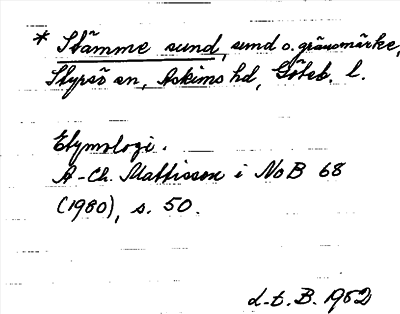 * Stämme sund, sund o. gränsmärke,
Styrsö sn, Askims hd, Göteb. l.
Etymologi.
A-Ch. Mattisson i NoB 68
(1980), s. 50.
L-t. B. 1982